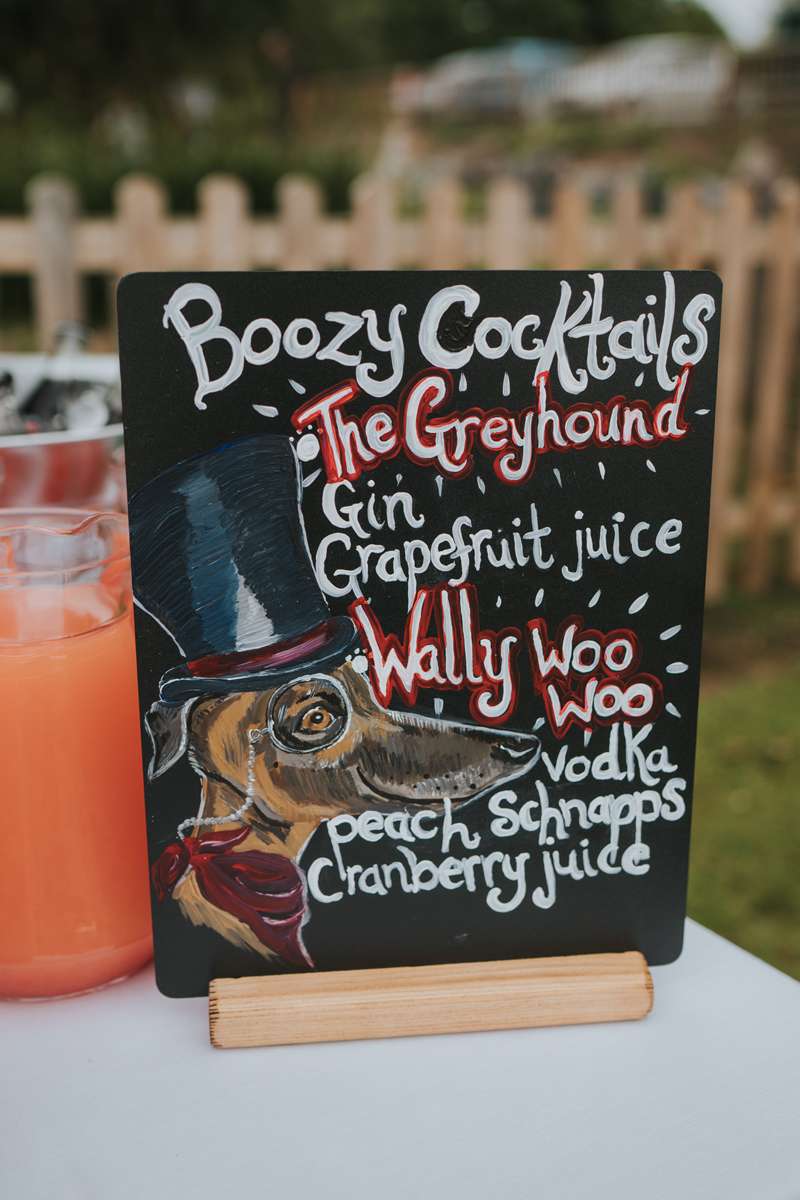 Boozy Cocktails
The Greyhound
Gin
Grapefruit juice
Wally Woo
Woo
vodka
peach Schnapps
Cranberry juice